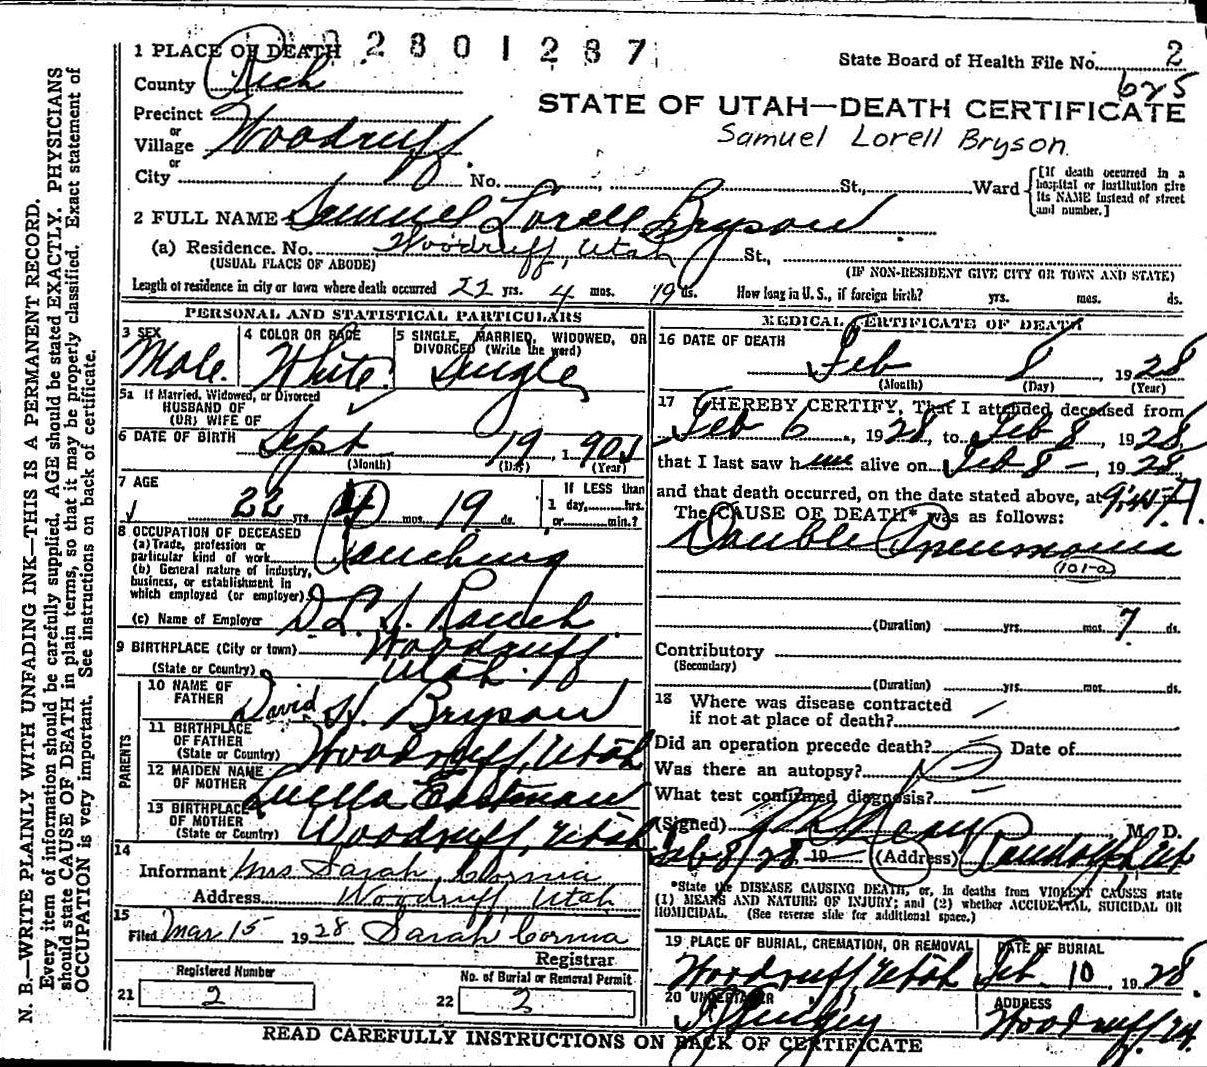 N. B.—WRITE PLAINLY WITH UNFADING INK—THIS IS A PERMANENT RECORD.
Every item of information should be carefully supplied. AGE should be stated EXACTLY. PHYSICIANS
should state CAUSE OF DEATH in plain terms, so that it may be properly classified. Exact statement of
OCCUPATION is very important. See instructions on back of certificate.
2801287
1 PLACE OF DEATH
State Board of Health File No. 2
625
County Rich
STATE OF UTAH—DEATH CERTIFICATE
Samuel Lorell Bryson
Precinct
or
Village Woodruff
or
City No. St., Ward
[If death occurred in a
hospital or institution give
its NAME instead of street
and number.]
2 FULL NAME Samuel Lorell Bryson
(a) Residence. No. Woodruff, Utah St.,
(USUAL PLACE OF ABODE) (IF NON-RESIDENT GIVE CITY OR TOWN AND STATE)
Length of residence in city or town where death occurred 22 yrs. 4 mos. 19 ds. How long in U. S., if foreign birth? yrs. mos. ds.
PERSONAL AND STATISTICAL PARTICULARS
3 SEX Male
4 COLOR OR RACE White
5 SINGLE, MARRIED, WIDOWED, OR
DIVORCED (Write the word) Single
5a If Married, Widowed, or Divorced
HUSBAND OF
(OR) WIFE OF
6 DATE OF BIRTH Sept 19, 1905
(Month) (Day) (Year)
7 AGE 22 yrs. 4 mos. 19 ds.
If LESS than
1 day, hrs.
or min.?
8 OCCUPATION OF DECEASED
(a) Trade, profession or
particular kind of work Ranching
(b) General nature of industry,
business, or establishment in
which employed (or employer)
(c) Name of Employer D L & Ranch
9 BIRTHPLACE (City or town) Woodruff
(State or Country) Utah
PARENTS
10 NAME OF
FATHER David H. Bryson
11 BIRTHPLACE
OF FATHER
(State or Country) Woodruff, Utah
12 MAIDEN NAME
OF MOTHER Luella Eastman
13 BIRTHPLACE
OF MOTHER
(State or Country) Woodruff, Utah
14
Informant Mrs Sarah Cornia
Address Woodruff, Utah
15
Filed Mar 15 1928 Sarah Cornia
Registrar
Registered Number
No. of Burial or Removal Permit
21 2
22 2
MEDICAL CERTIFICATE OF DEATH
16 DATE OF DEATH
Feb 8 1928
(Month) (Day) (Year)
17 I HEREBY CERTIFY, That I attended deceased from
Feb 6, 1928, to Feb 8, 1928,
that I last saw him alive on Feb 8 -, 1928,
and that death occurred, on the date stated above, at
The CAUSE OF DEATH* was as follows:
Double Pneumonia
101-a
(Duration) yrs. mos. 7 ds.
Contributory
(Secondary)
(Duration) yrs. mos. ds.
18 Where was disease contracted
if not at place of death?
Did an operation precede death? Date of
Was there an autopsy?
What test confirmed diagnosis?
(Signed) M. D.
Feb 8/28 19 (Address) Randolph Ut
*State the DISEASE CAUSING DEATH, or, in deaths from VIOLENT CAUSES state
(1) MEANS AND NATURE OF INJURY; and (2) whether ACCIDENTAL, SUICIDAL OR
HOMICIDAL. (See reverse side for additional space.)
19 PLACE OF BURIAL, CREMATION, OR REMOVAL
Woodruff, Utah
DATE OF BURIAL
Feb. 10 1928
20 UNDERTAKER
ADDRESS
Woodruff
READ CAREFULLY INSTRUCTIONS ON BACK OF CERTIFICATE